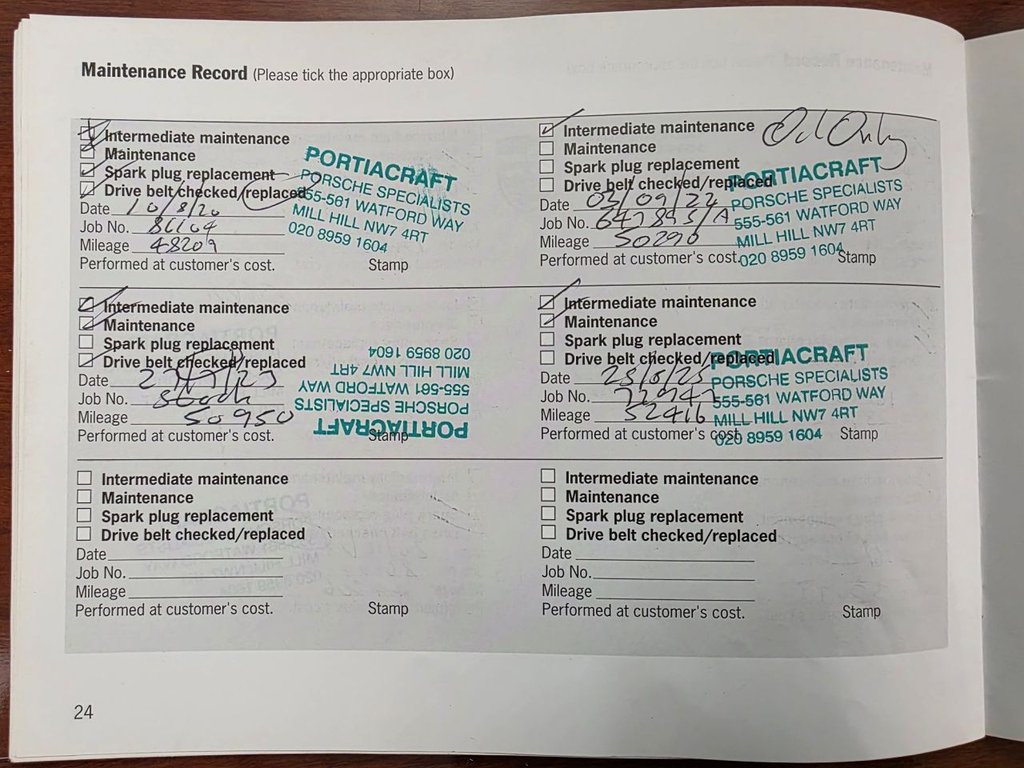 Maintenance Record (Please tick the appropriate box)
Intermediate maintenance
Maintenance
Spark plug replacement
Drive belt checked/replaced
Date 10/8/20
Job No.
Mileage 48209
Performed at customer's cost.
Stamp
PORTIACRAFT
PORSCHE SPECIALISTS
555-561 WATFORD WAY
MILL HILL NW7 4RT
020 8959 1604
Oil Only
Intermediate maintenance
Maintenance
Spark plug replacement
Drive belt checked/replaced
Date 03/09/22
Job No. 647895/A
Mileage 50290
Performed at customer's cost.
Stamp
PORTIACRAFT
PORSCHE SPECIALISTS
555-561 WATFORD WAY
MILL HILL NW7 4RT
020 8959 1604
Intermediate maintenance
Maintenance
Spark plug replacement
Drive belt checked/replaced
Date
Job No.
Mileage 50950
Performed at customer's cost.
Stamp
PORTIACRAFT
PORSCHE SPECIALISTS
555-561 WATFORD WAY
MILL HILL NW7 4RT
020 8959 1604
Intermediate maintenance
Maintenance
Spark plug replacement
Drive belt checked/replaced
Date
Job No.
Mileage 52416
Performed at customer's cost
Stamp
PORTIACRAFT
PORSCHE SPECIALISTS
555-561 WATFORD WAY
MILL HILL NW7 4RT
020 8959 1604
Intermediate maintenance
Maintenance
Spark plug replacement
Drive belt checked/replaced
Date
Job No.
Mileage
Performed at customer's cost.
Stamp
Intermediate maintenance
Maintenance
Spark plug replacement
Drive belt checked/replaced
Date
Job No.
Mileage
Performed at customer's cost.
Stamp
24